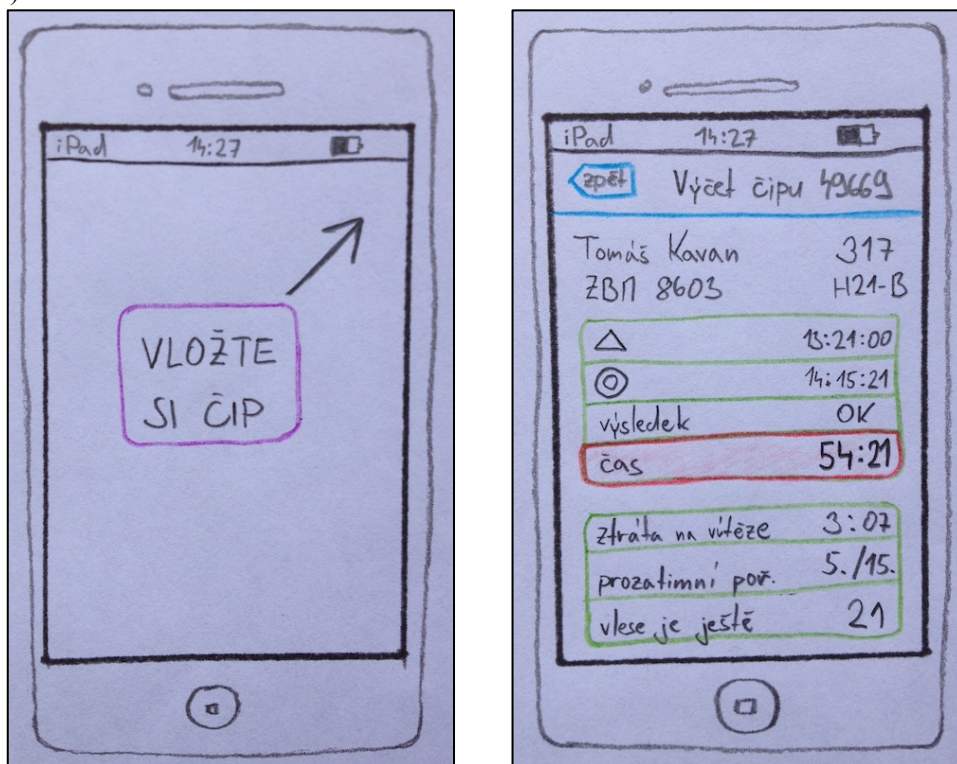 )
iPad 14:27
VLOŽTE
SI ČIP
iPad 14:27
zpět Výčet čipu 49669
Tomáš Kavan 317
ZBM 8603 H21-B
13:21:00
14:15:21
výsledek OK
čas 54:21
ztráta na vítěze 3:07
prozatimní poř. 5./15.
vlese je ještě 21